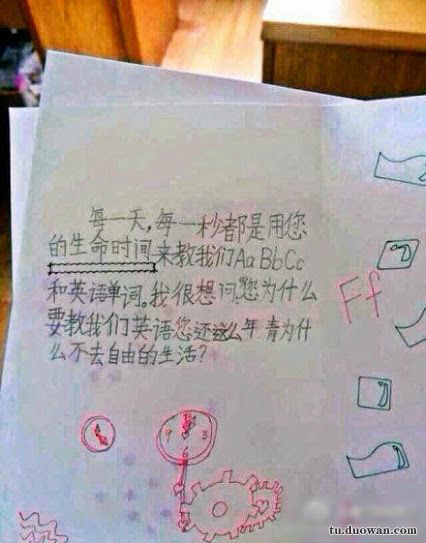 每一天，每一秒都是用您
的生命时间来教我们AaBbCc
和英语单词。我很想问，您为什么
要教我们英语您还这么年青为什
么不去自由的生活？
Ff
9 3
6
tu.duowan.com